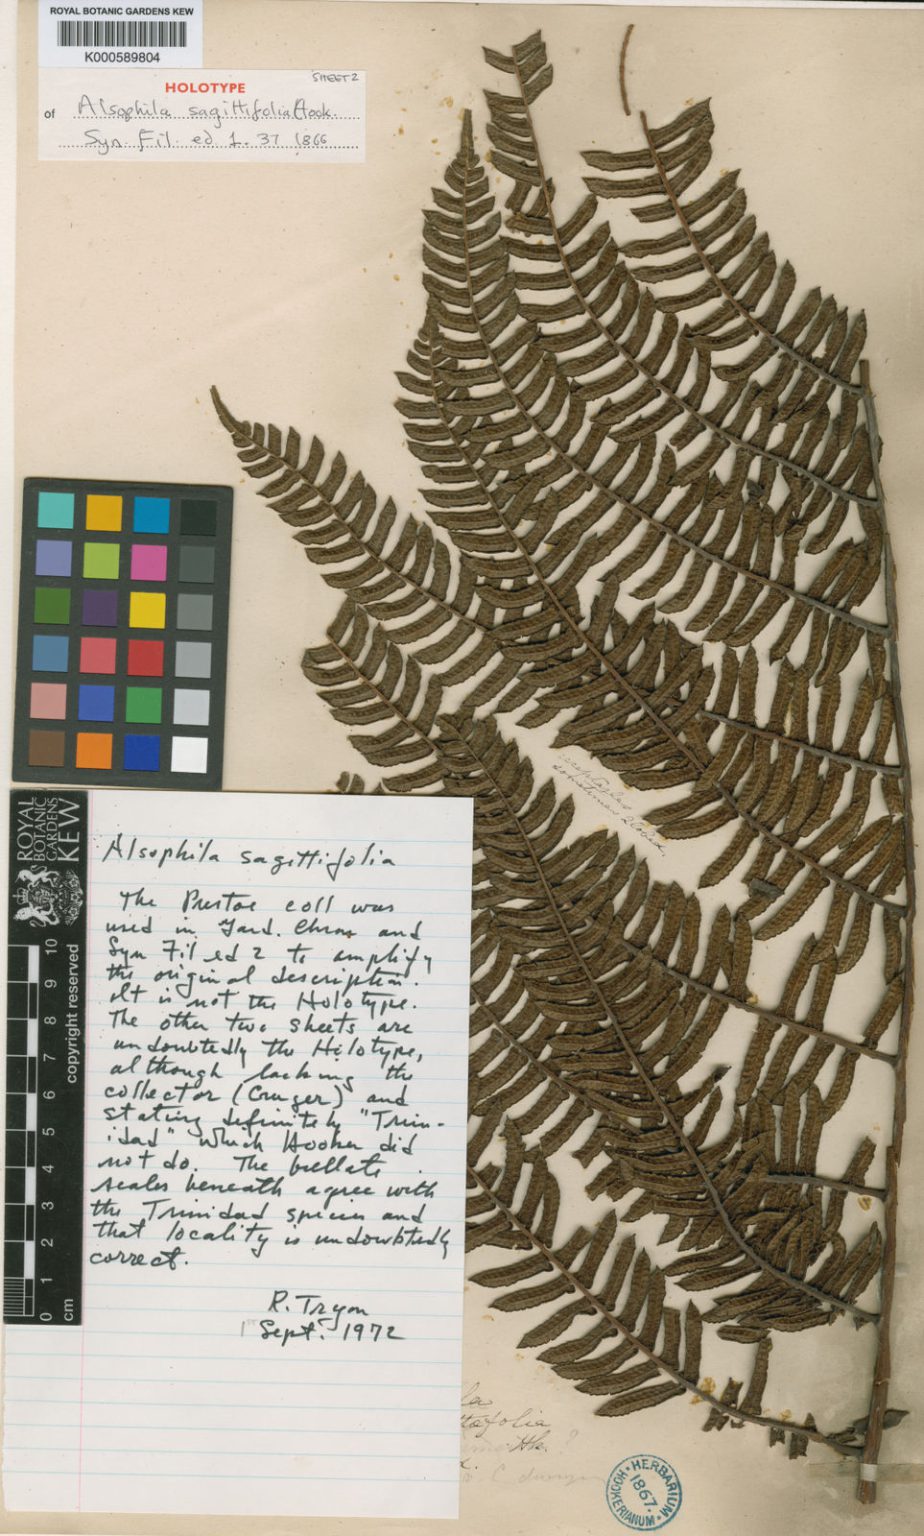 ROYAL BOTANIC GARDENS KEW
K000589804
SHEET 2
HOLOTYPE
of Alsophila sagittifolia Hook.
Syn. Fil. ed 1. 37 1866
receptacles
sometimes 2 lobed
Alsophila sagittifolia
The Prestoe coll was
used in Gard. Chron and
Syn Fil ed 2 to amplify
the original description.
It is not the Holotype.
The other two sheets are
undoubtedly the Holotype,
although lacking the
collector (Cruger) and
stating definitely "Trin-
idad" which Hooker did
not do. The bullate
scales beneath agree with
the Trinidad species and
that locality is undoubtedly
correct.
R. Tryon
1 Sept. 1972
ROYAL
BOTANIC
GARDENS
KEW
copyright reserved
0 1 2 3 4 5 6 7 8 9 10
cm
la
ttafolia
Hk. ?
HERBARIUM HOOKERIANUM
1867.